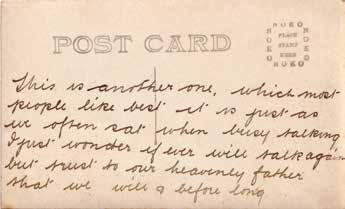 POST CARD
NOKO
PLACE
STAMP
HERE
NOKO
This is another one, which most
people like best it is just as
we often sat when busy talking
I just wonder if ever will talk again
but trust to our heavenly father
that we will before long